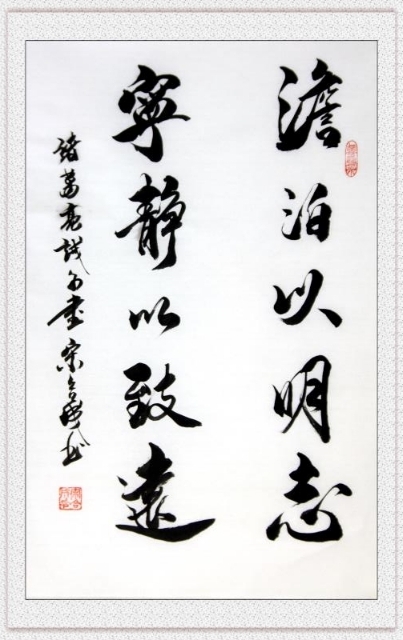 澹泊以明志
寧静以致遠
諸葛亮誡子書